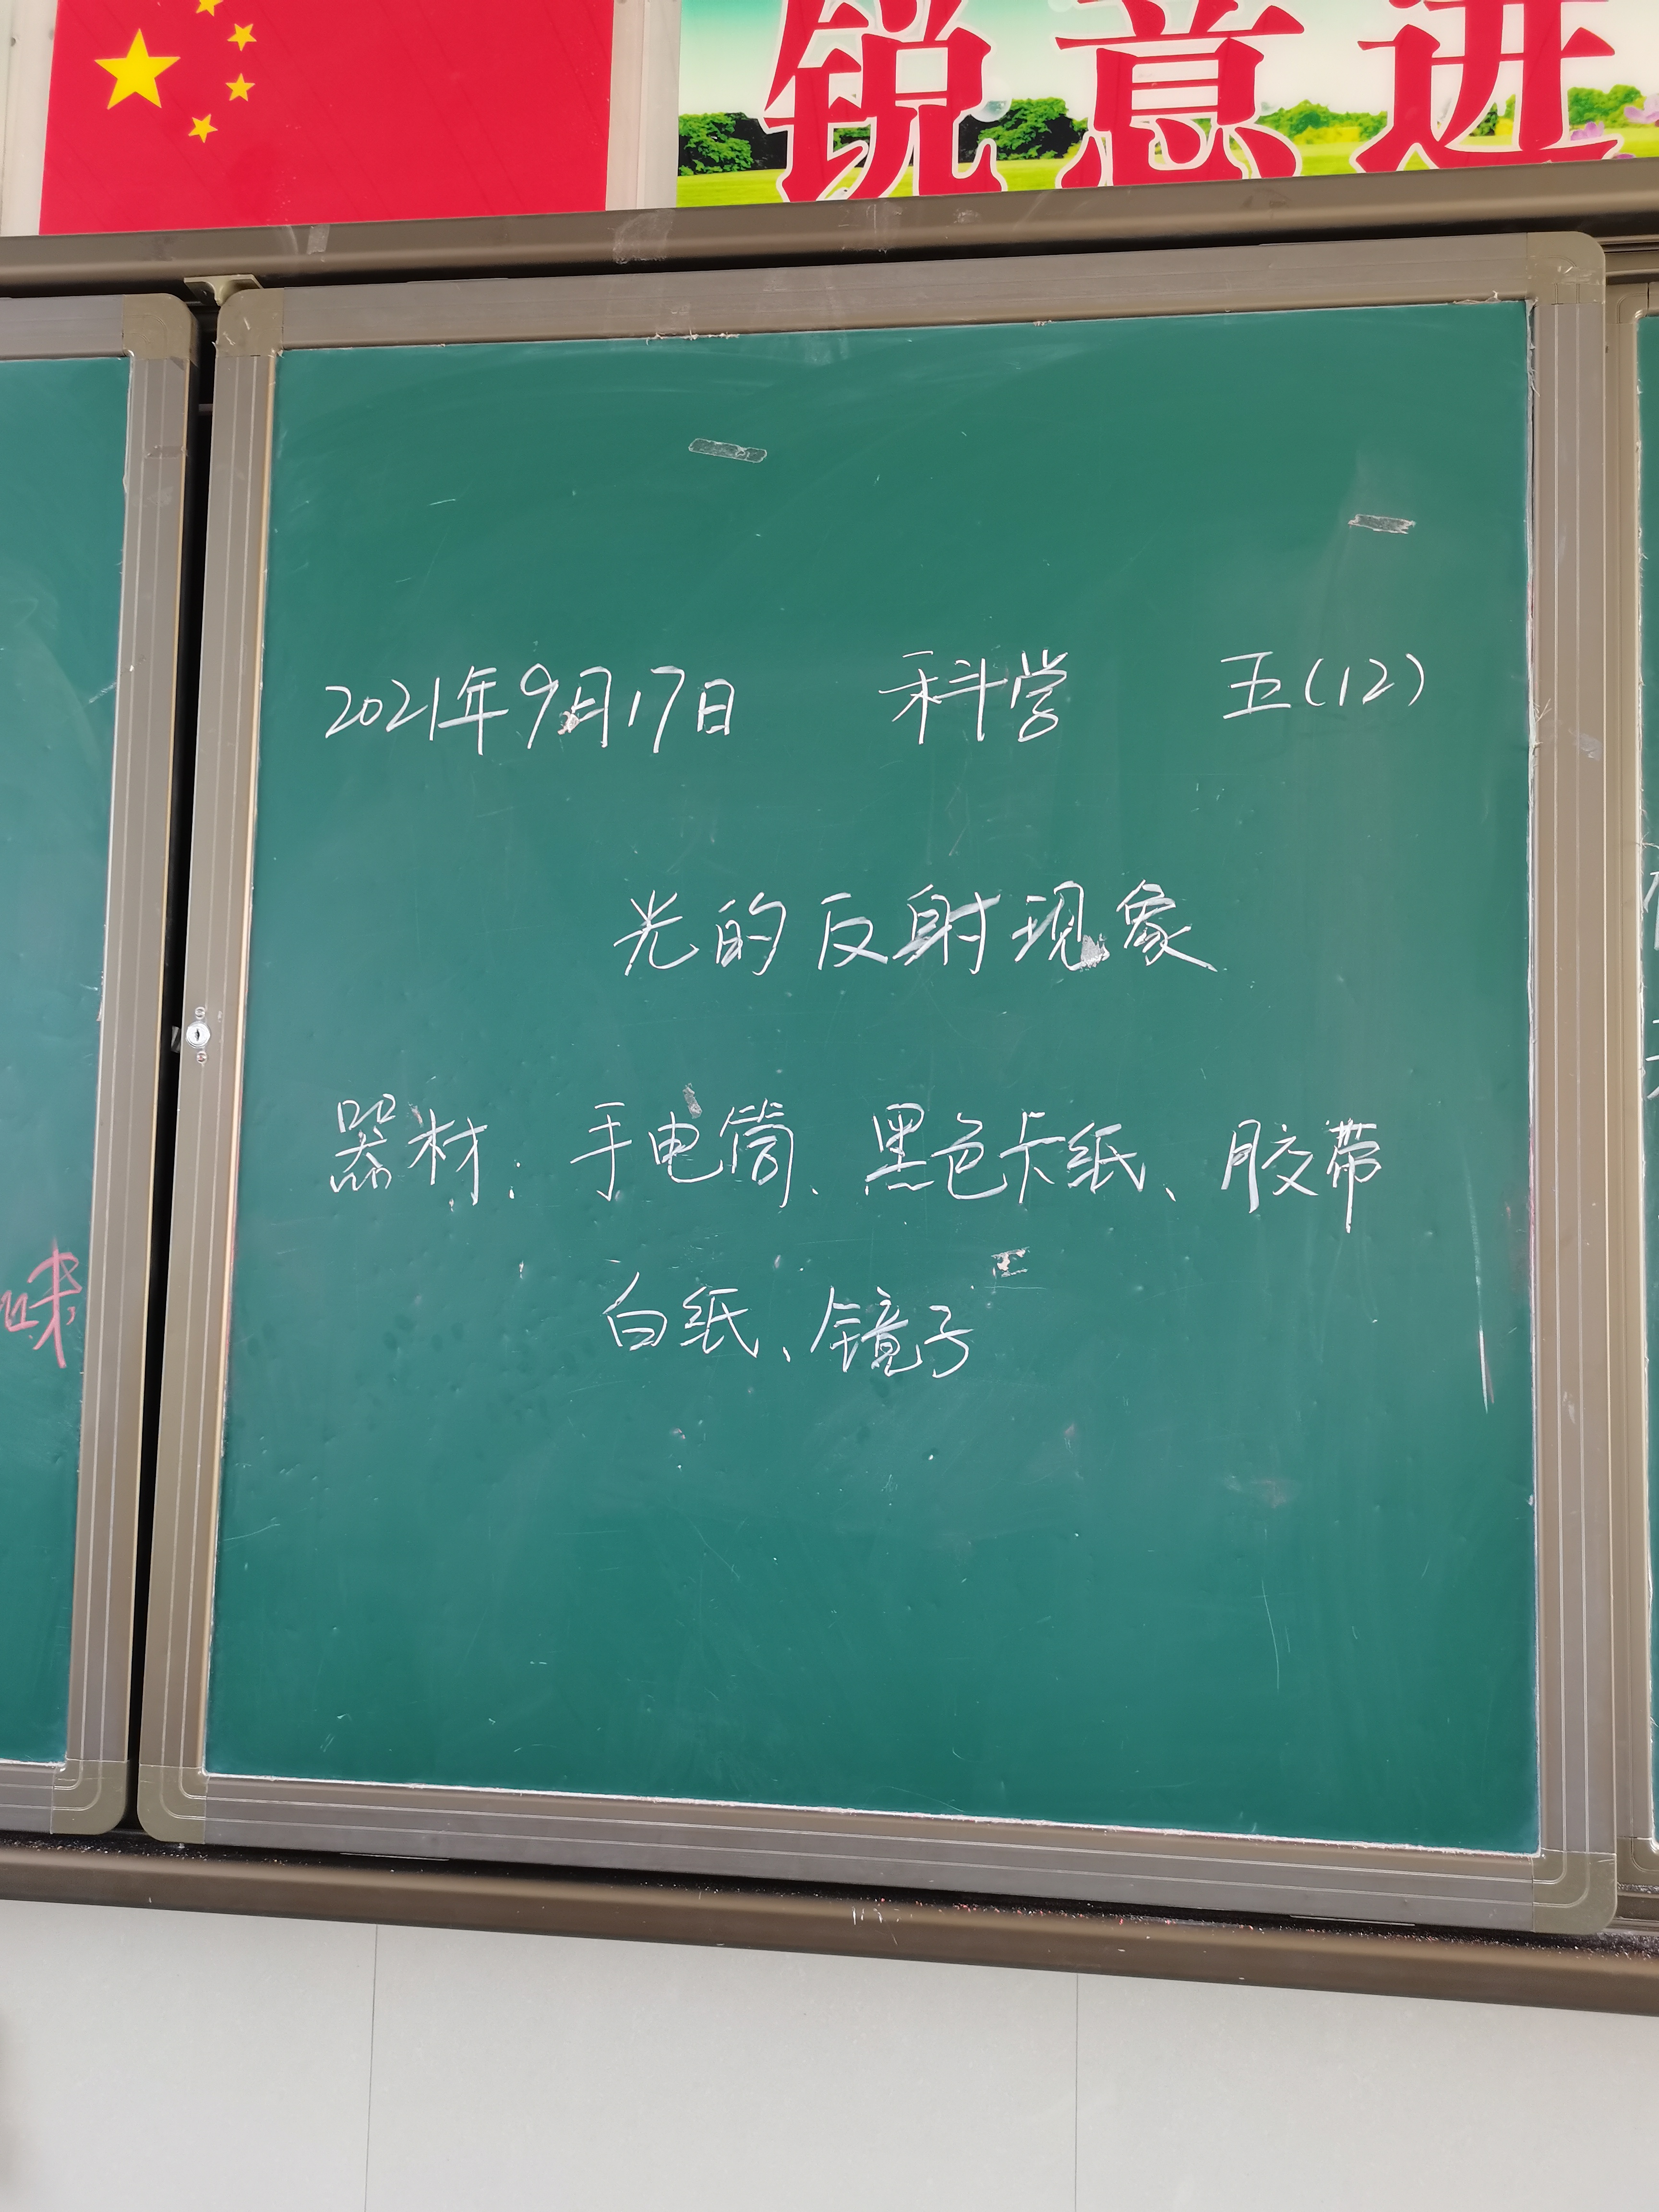 锐意进
2021年9月17日 科学 五(12)
光的反射现象
器材：手电筒、黑色卡纸、胶带
白纸、镜子
味